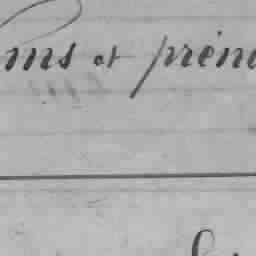 oms et préno